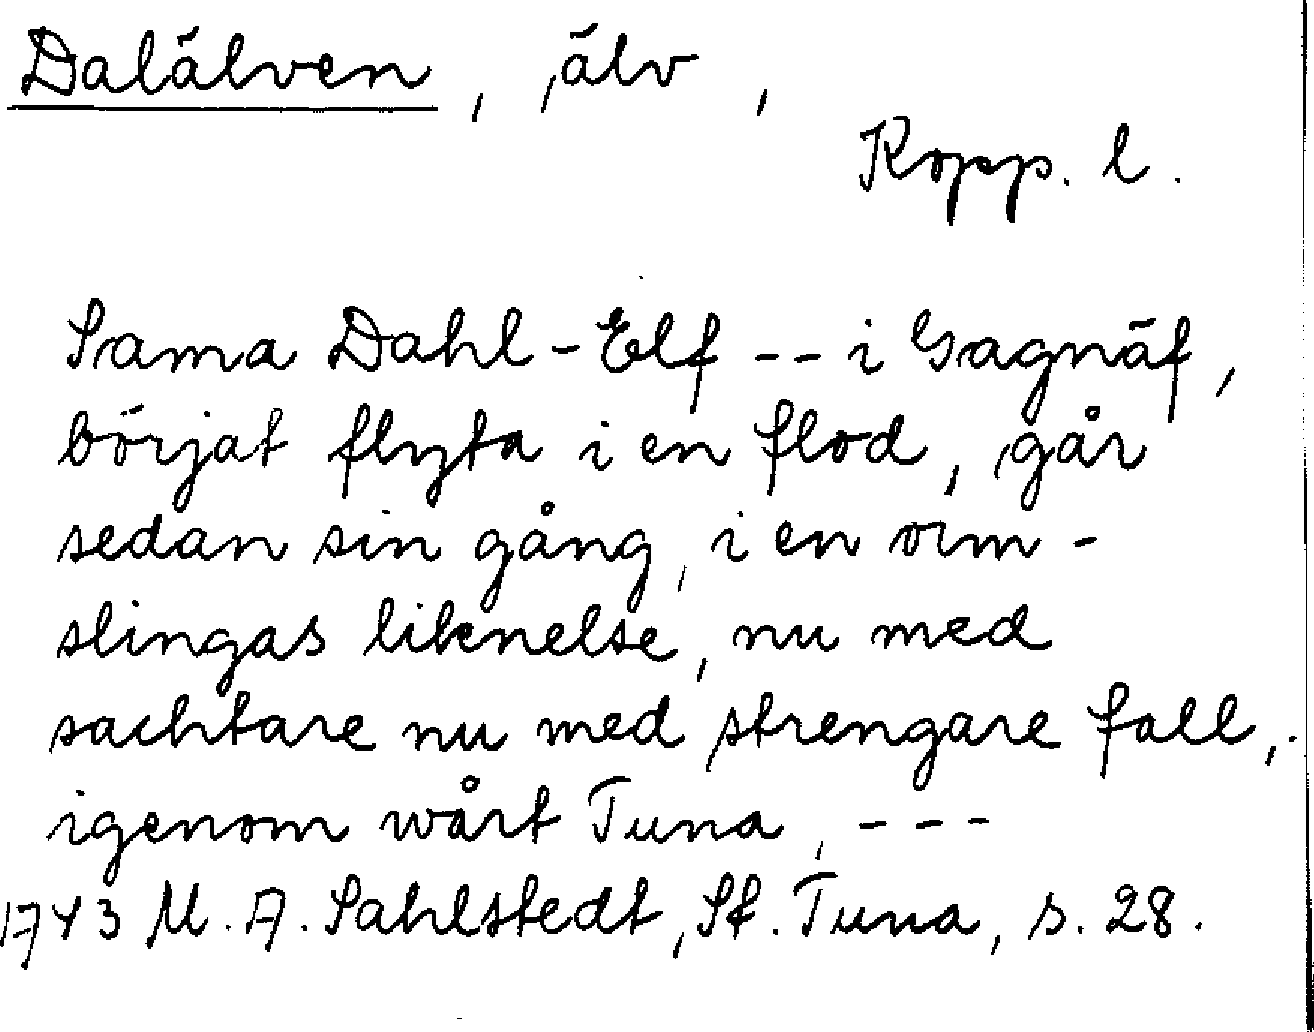 Dalälven, älv,
Kopp. l.
Sama Dahl-Elf -- i Gagnäf,
börjat flyta i en flod, går
sedan sin gång, i en orm-
slingas liknelse, nu med
sachtare nu med strengare fall,
igenom wårt Tuna, ---
1743 M. A. Sahlstedt, St. Tuna, s. 28.